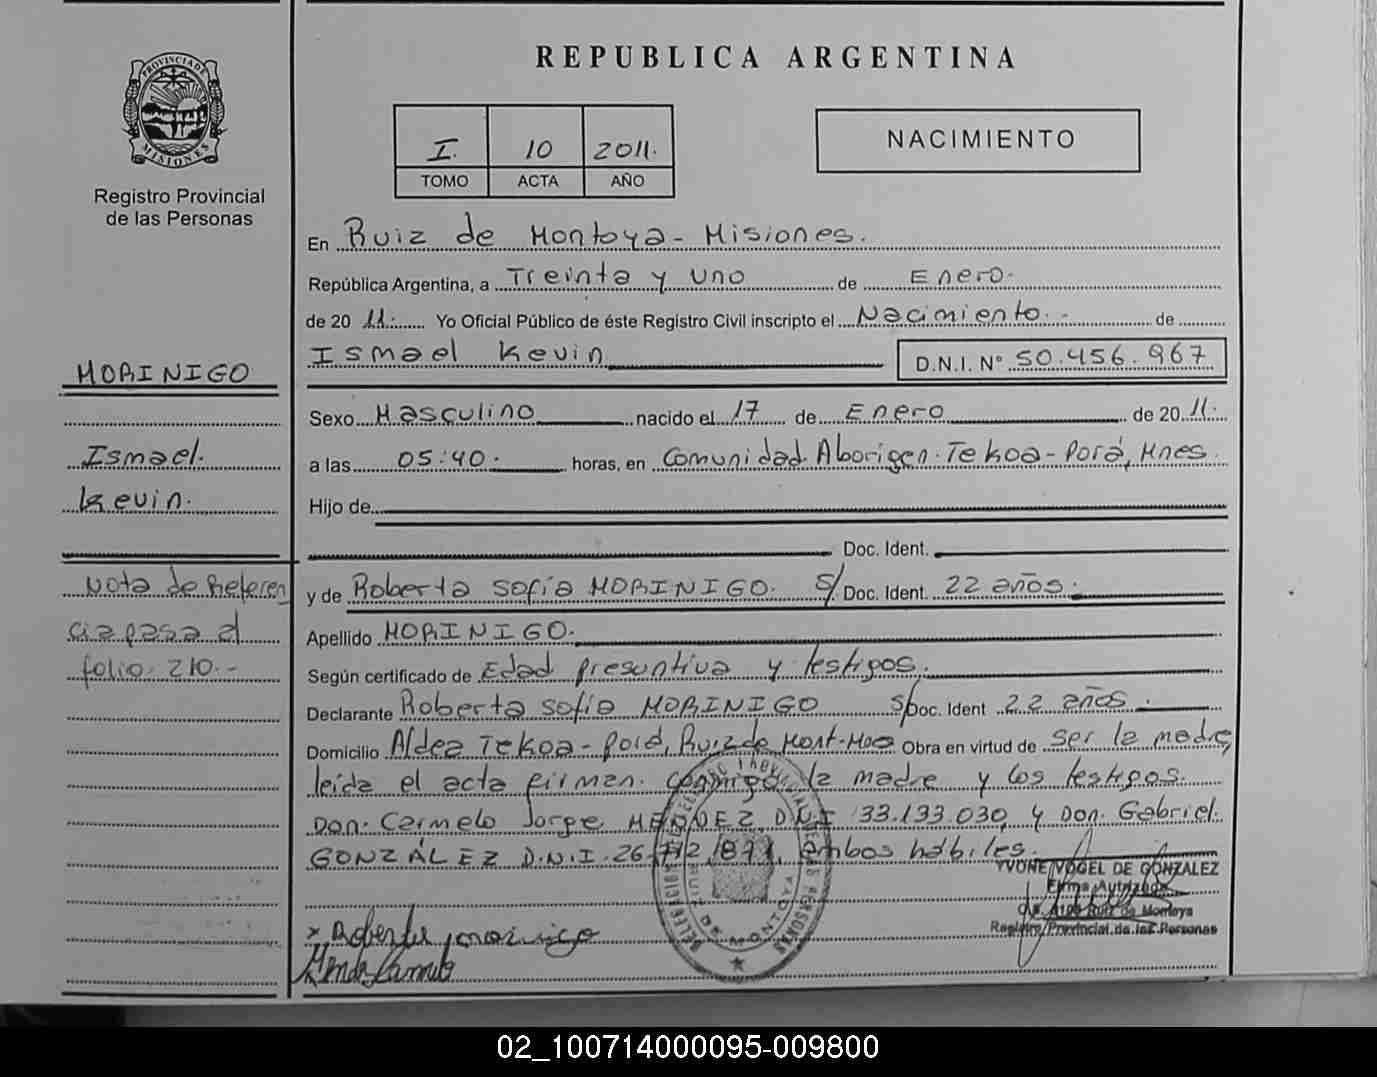 REPUBLICA ARGENTINA
PROVINCIA DE
MISIONES
Registro Provincial
de las Personas
I. 10 2011.
TOMO ACTA AÑO
NACIMIENTO
En Ruiz de Montoya - Misiones.
República Argentina, a Treinta y uno de Enero.
de 20 11. Yo Oficial Público de éste Registro Civil inscripto el Nacimiento. - de
Ismael Kevin D.N.I. N° 50.456.967
MORINIGO
Ismael.
Kevin.
Sexo Masculino nacido el 17 de Enero de 20 11.
a las 05:40. horas, en Comunidad Aborigen Tekoa - Porá, Mnes.
Hijo de
Doc. Ident.
y de Roberta Sofía MORINIGO. S/ Doc. Ident. 22 años.
Nota de Referen
cia pasa al
folio 210.-
Apellido MORINIGO.
Según certificado de Edad presuntiva y testigos.
Declarante Roberta Sofía MORINIGO S/Doc. Ident 22 años.
Domicilio Aldea Tekoa - Porá, Ruiz de Mont - Obra en virtud de ser la madre,
leída el acta firman conmigo la madre y los testigos.
Don. Carmelo Jorge MENDEZ, D.N.I 33.133.030, y Don. Gabriel.
GONZÁLEZ D.N.I. 26. ambos hábiles.
YVONE VOGEL DE GONZALEZ
Registro Provincial de las Personas
RUIZ DE MONTOYA
x Roberta morinigo
02_100714000095-009800